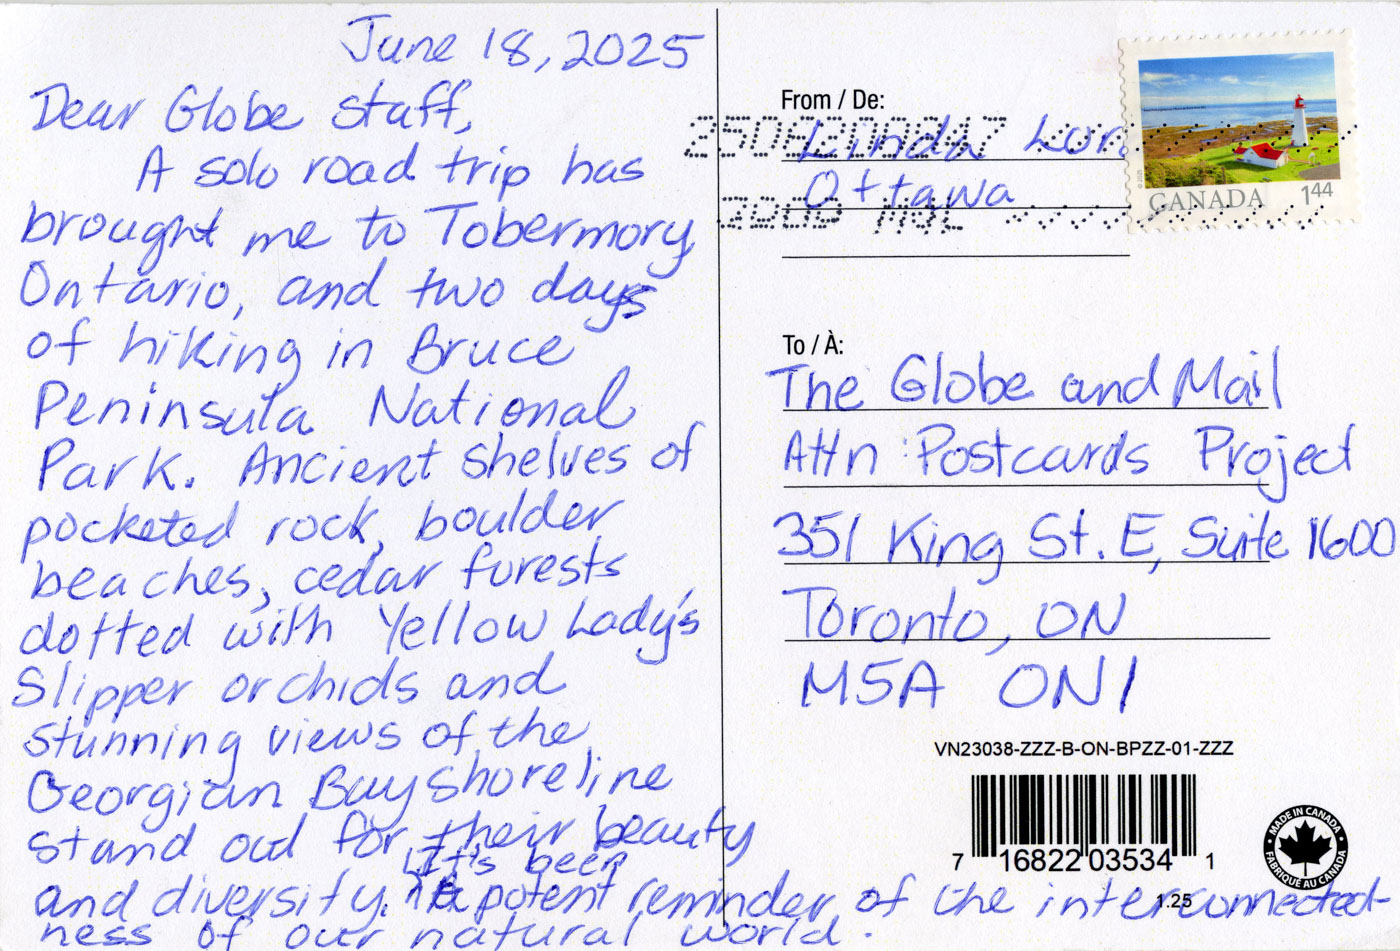 June 18, 2025
Dear Globe staff,
A solo road trip has
brought me to Tobermory,
Ontario, and two days
of hiking in Bruce
Peninsula National
Park. Ancient shelves of
pocketed rock, boulder
beaches, cedar forests
dotted with Yellow Lady's
Slipper orchids and
stunning views of the
Georgian Bay shoreline
stand out for their beauty
and diversity. It's been a potent reminder of the interconnected-
ness of our natural world.
From / De:
Linda
Ottawa
CANADA 1.44
To / À:
The Globe and Mail
Attn: Postcards Project
351 King St. E, Suite 1600
Toronto, ON
M5A ON1
VN23038-ZZZ-B-ON-BPZZ-01-ZZZ
7 16822 03534 1
MADE IN CANADA
FABRIQUÉ AU CANADA
1.25